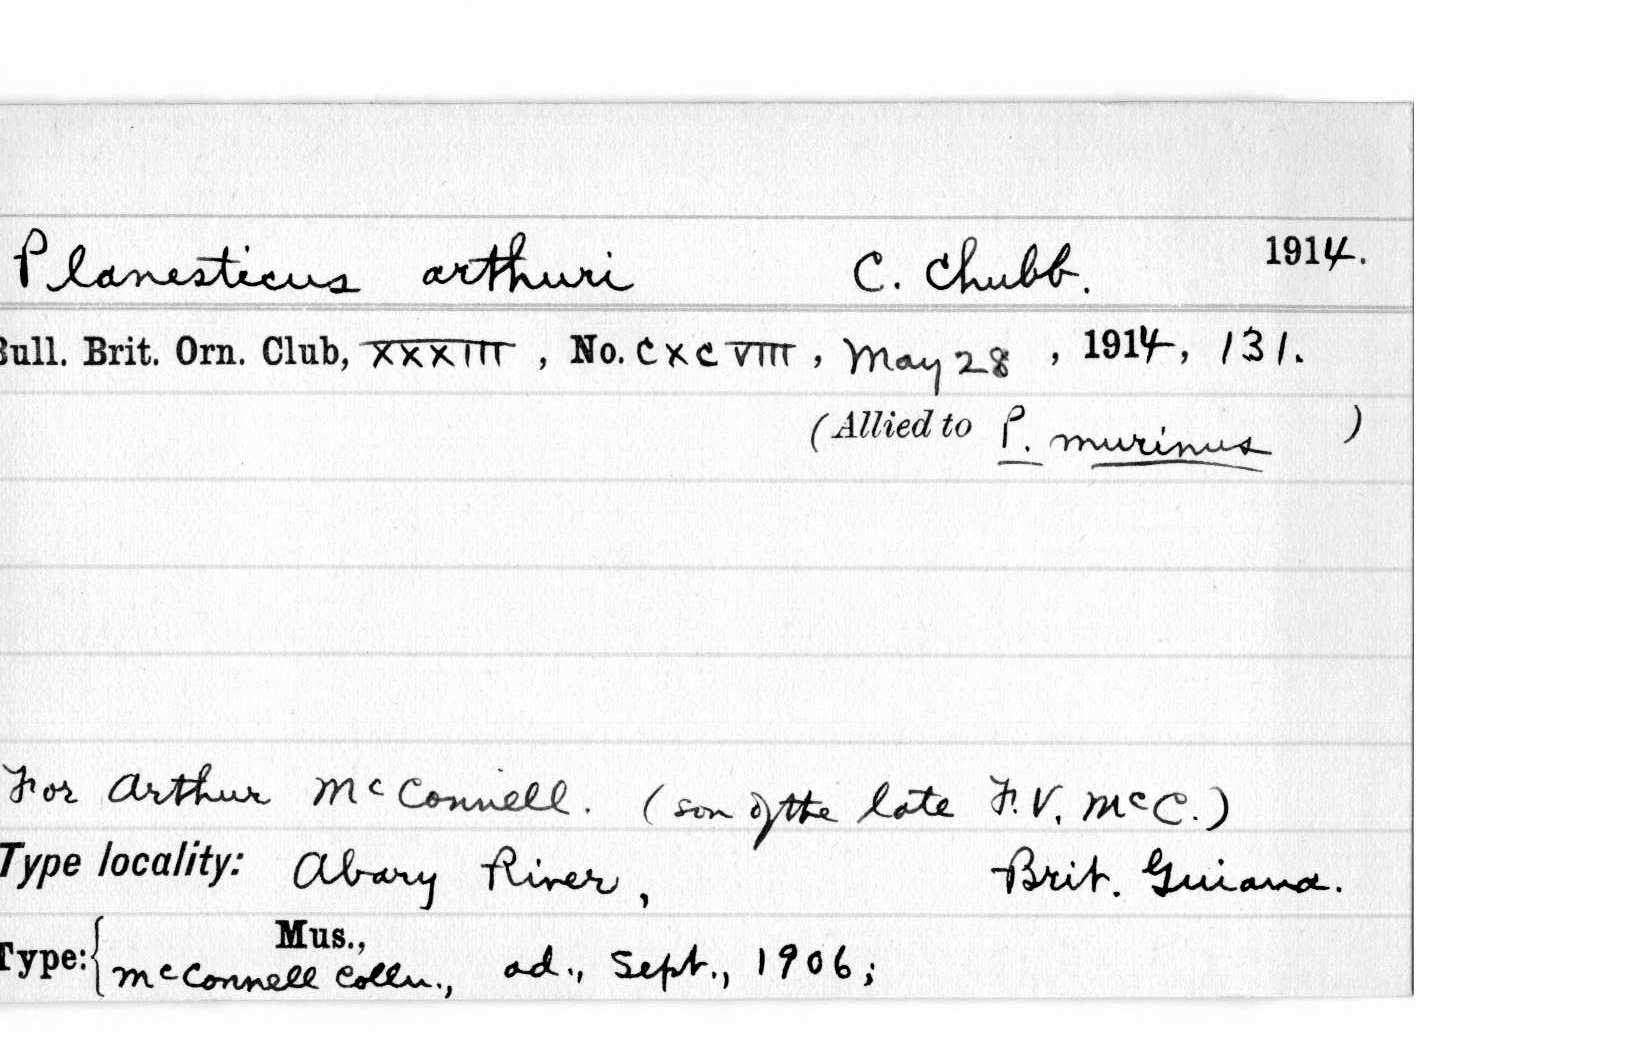 Planesticus arthuri C. Chubb. 1914.
Bull. Brit. Orn. Club, XXXIII, No. CXCVIII, May 28, 1914, 131.
(Allied to P. murinus )
For Arthur McConnell. (son of the late F. V. McC.)
Type locality: Abary River, Brit. Guiana.
Mus.,
Type: { McConnell Colln., ad., Sept., 1906;